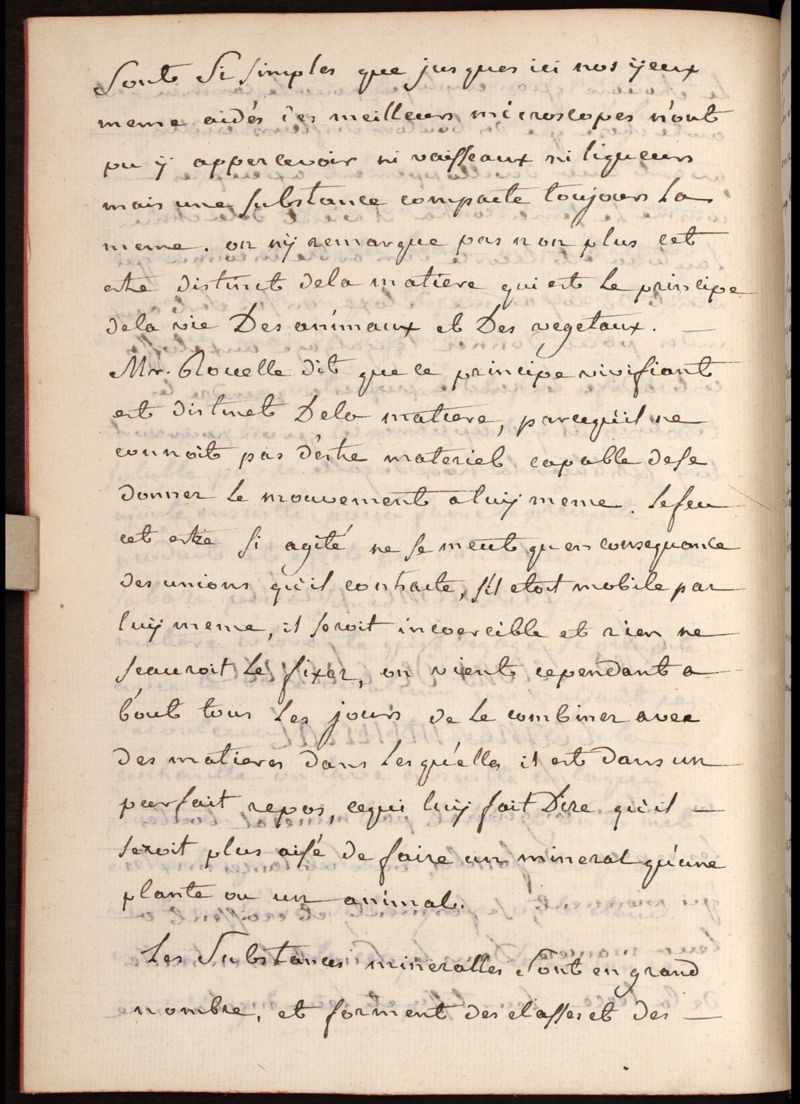 Sont Si simples que jusques ici nos yeux
meme aidés des meilleurs microscopes n'ont
pu y appercevoir ni vaisseaux ni liqueurs
mais une substance compacte toujours la
meme. on n'y remarque pas non plus cet
estre distinct dela matiere qui est le principe
dela vie Des animaux et Des vegetaux. —
Mr. Rouelle dit que ce principe vivifiant
est distinct Dela matiere, parcequ'il ne
connoit pas d'estre materiel capable dese
donner le mouvement a luy meme. le feu
cet estre si agité ne se meut qu'en consequance
des unions qu'il contracte, s'il etoit mobile par
luy meme, il seroit incoercible et rien ne
scauroit le fixer, on vient cependant a
bout tous les jours de le combiner avec
des matieres dans lesquelles il est dans un
parfait repos, cequi luy fait Dire qu'il —
seroit plus aisé de faire un mineral qu'une
plante ou un animal.
Les Substances mineralles sont en grand
nombre, et forment des classes et des —